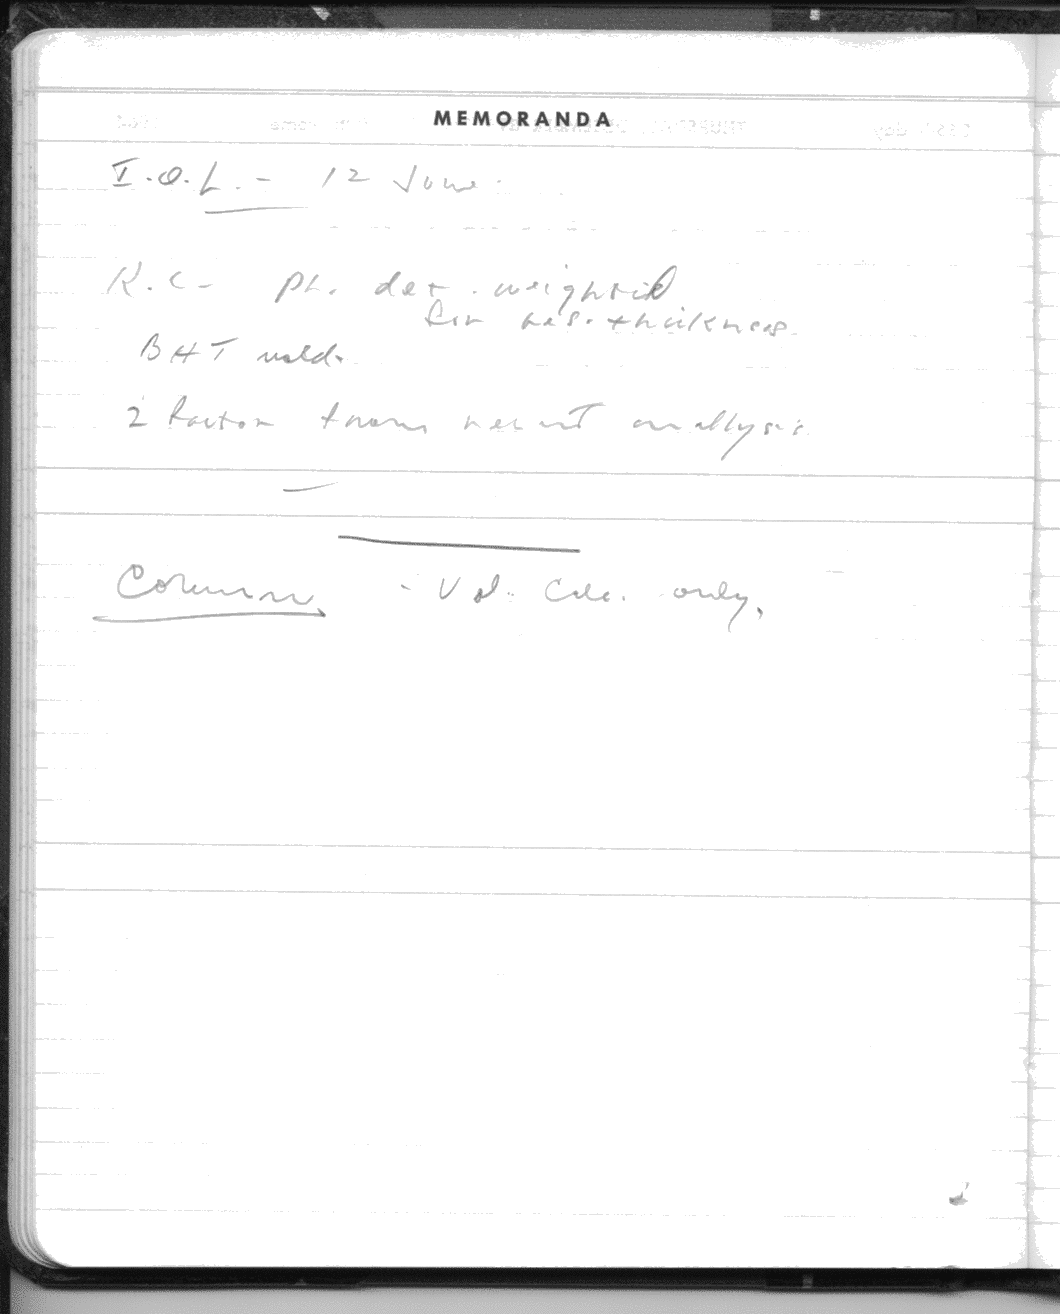 MEMORANDA
I.O.L. - 12 June
K.C- ph. det. weighted
for res. thickness
BHT
2 factor analysis
Column - Vol. Calc. only.